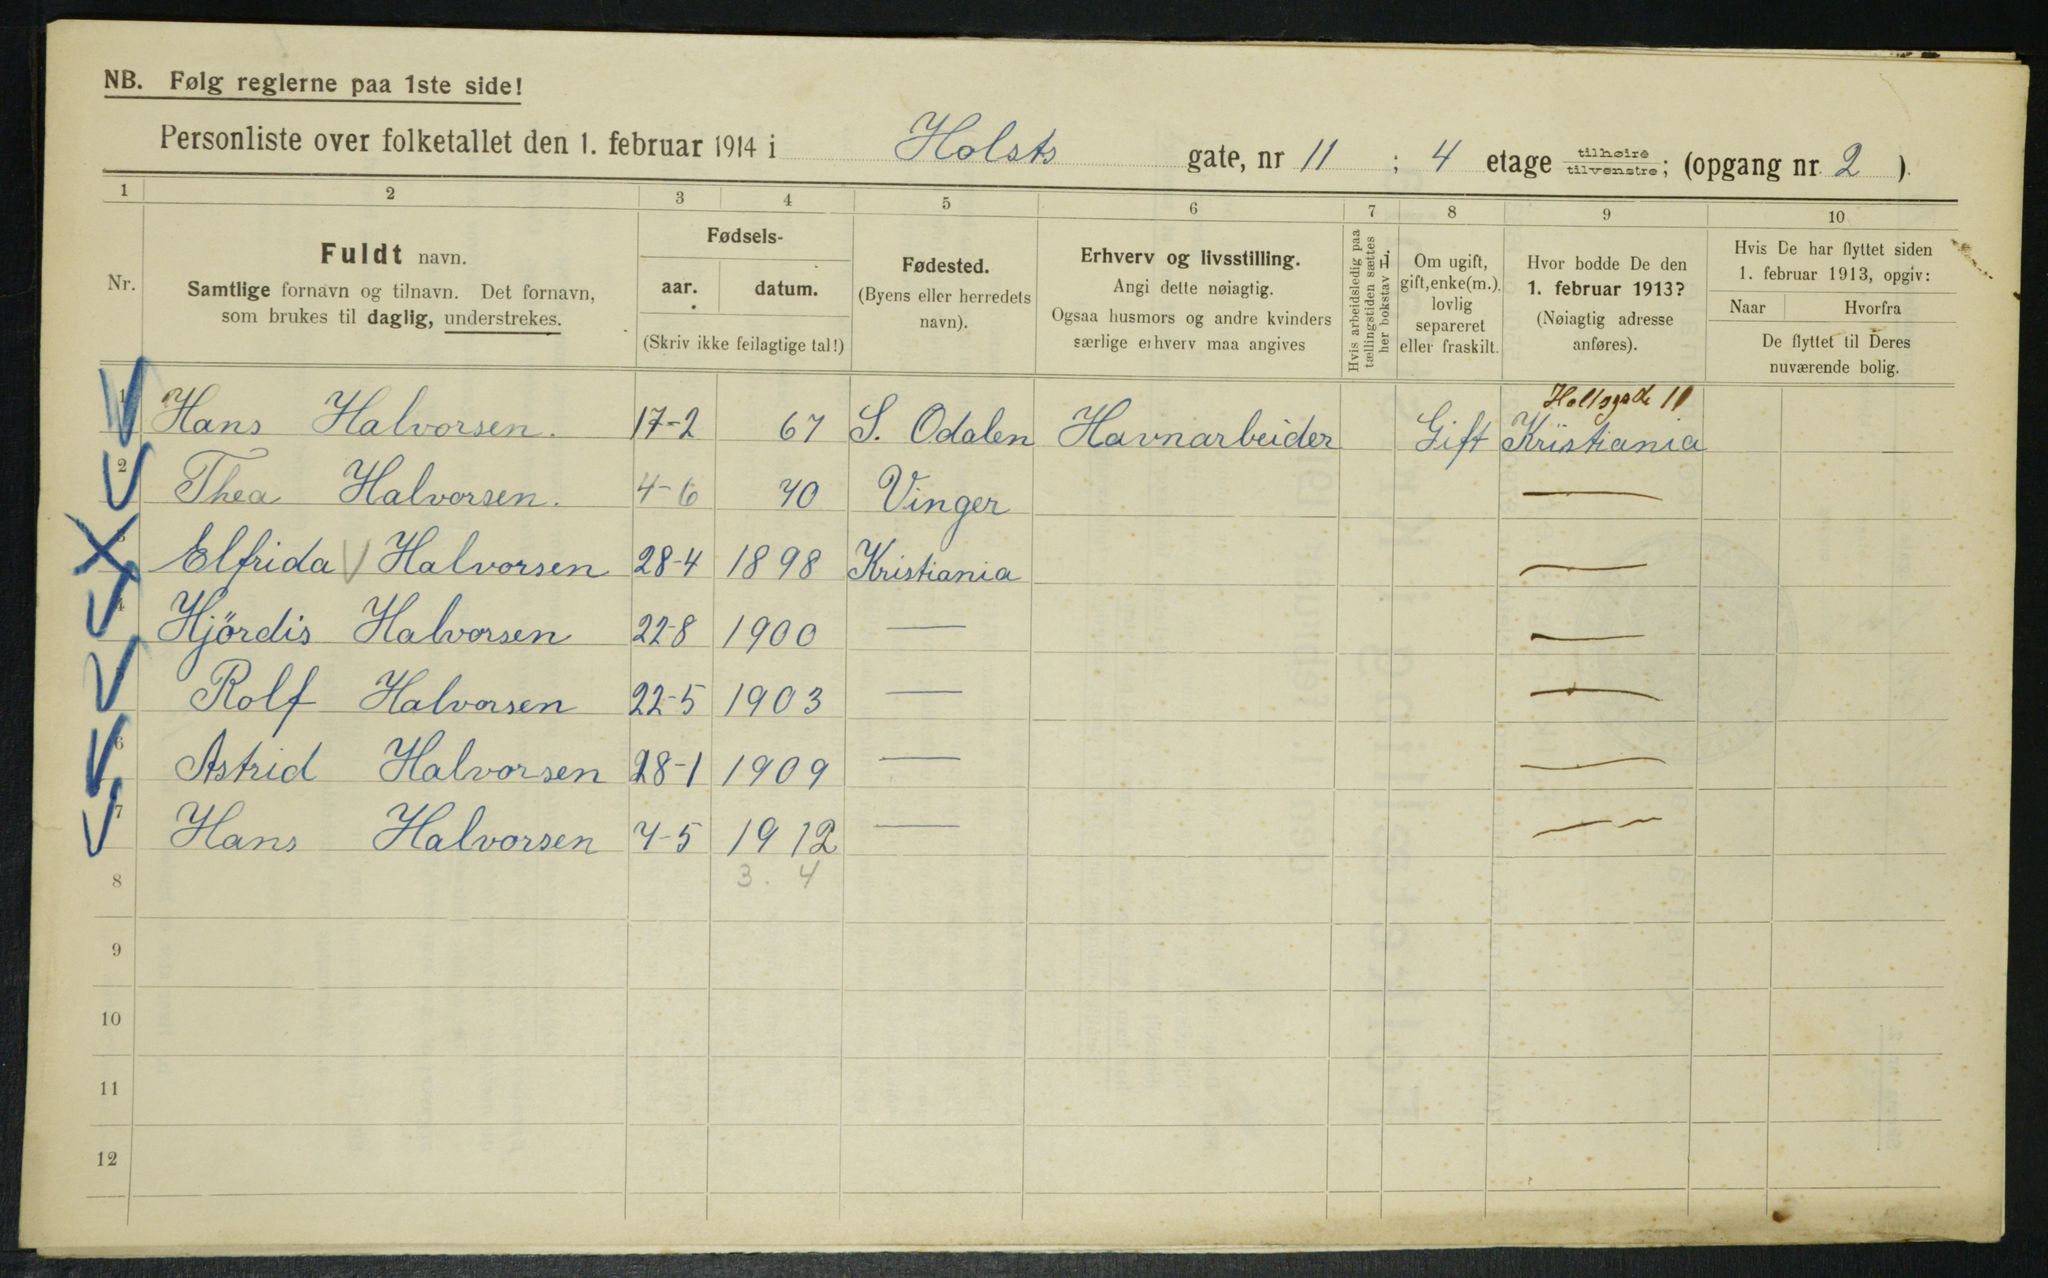 NB. Følg reglerne paa 1ste side!
Personliste over folketallet den 1. februar 1914 i Holsts gate, nr 11 ; 4 etage tilhøire tilvenstre; (opgang nr. 2 ).
1 2 3 4 5 6 7 8 9 10
Nr.
Fuldt navn.
Samtlige fornavn og tilnavn. Det fornavn,
som brukes til daglig, understrekes.
Fødsels-
aar. datum.
(Skriv ikke feilagtige tal!)
Fødested.
(Byens eller herredets
navn).
Erhverv og livsstilling.
Angi dette nøiagtig.
Ogsaa husmors og andre kvinders
særlige erhverv maa angives
Hvis arbeidsledig paa
tællingstiden sættes
her bokstav L.
Om ugift,
gift, enke(m.),
lovlig
separeret
eller fraskilt.
Hvor bodde De den
1. februar 1913?
(Nøiagtig adresse
anføres).
Hvis De har flyttet siden
1. februar 1913, opgiv:
Naar Hvorfra
De flyttet til Deres
nuværende bolig.
Holtsgade 11
1 Hans Halvorsen. 17-2 67 S. Odalen Havnarbeider Gift Kristiania
2 Thea Halvorsen. 4-6 70 Vinger —
3 Elfrida Halvorsen 28-4 1898 Kristiania —
4 Hjördis Halvorsen 22-8 1900 — —
5 Rolf Halvorsen 22-5 1903 — —
6 Astrid Halvorsen 28-1 1909 — —
7 Hans Halvorsen 7-5 1912 — —
8 3. 4
9
10
11
12